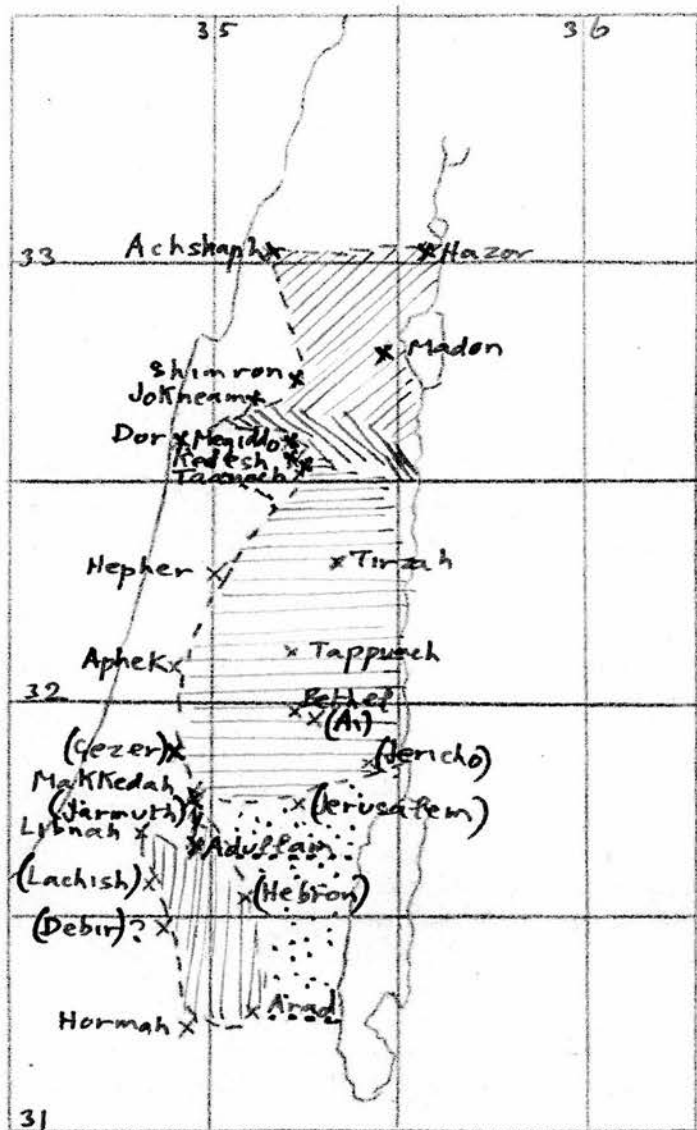 35 36
Achshaph Hazor
33
Madon
Shimron
Jokneam
Dor Megiddo
Kedesh
Taanach
Hepher Tirzah
Aphek Tappuach
32 Bethel
(Ai)
(Gezer) (Jericho)
Makkedah
(Jarmuth) (Jerusalem)
Libnah
Adullam
(Lachish) (Hebron)
(Debir)?
Arad
Hormah
31